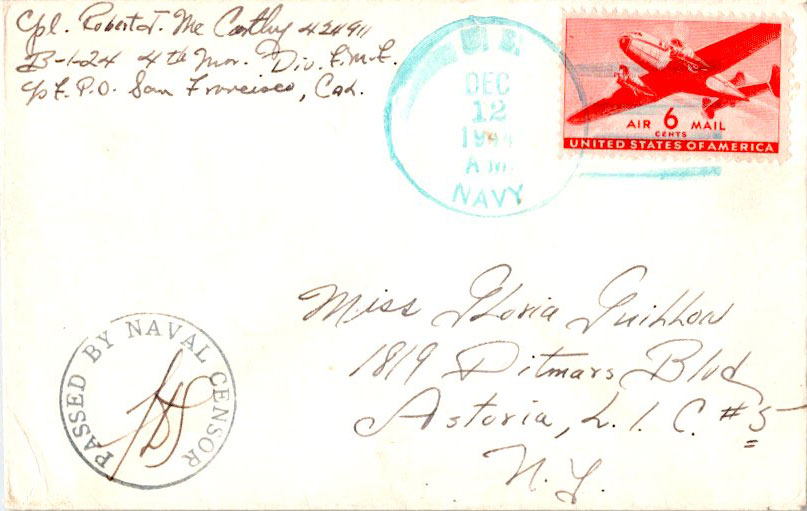 Cpl. Robert J. Mc Carthy 424911
B-1-24 4th Mar. Div. F.M.F.
c/o F.P.O. San Francisco, Cal.
U.S.
DEC
12
1944
A.M.
NAVY
AIR 6 MAIL
CENTS
UNITED STATES OF AMERICA
Miss Gloria
1819 Ditmars Blvd
Astoria, L.I.C. #5
N.Y.
PASSED BY NAVAL CENSOR